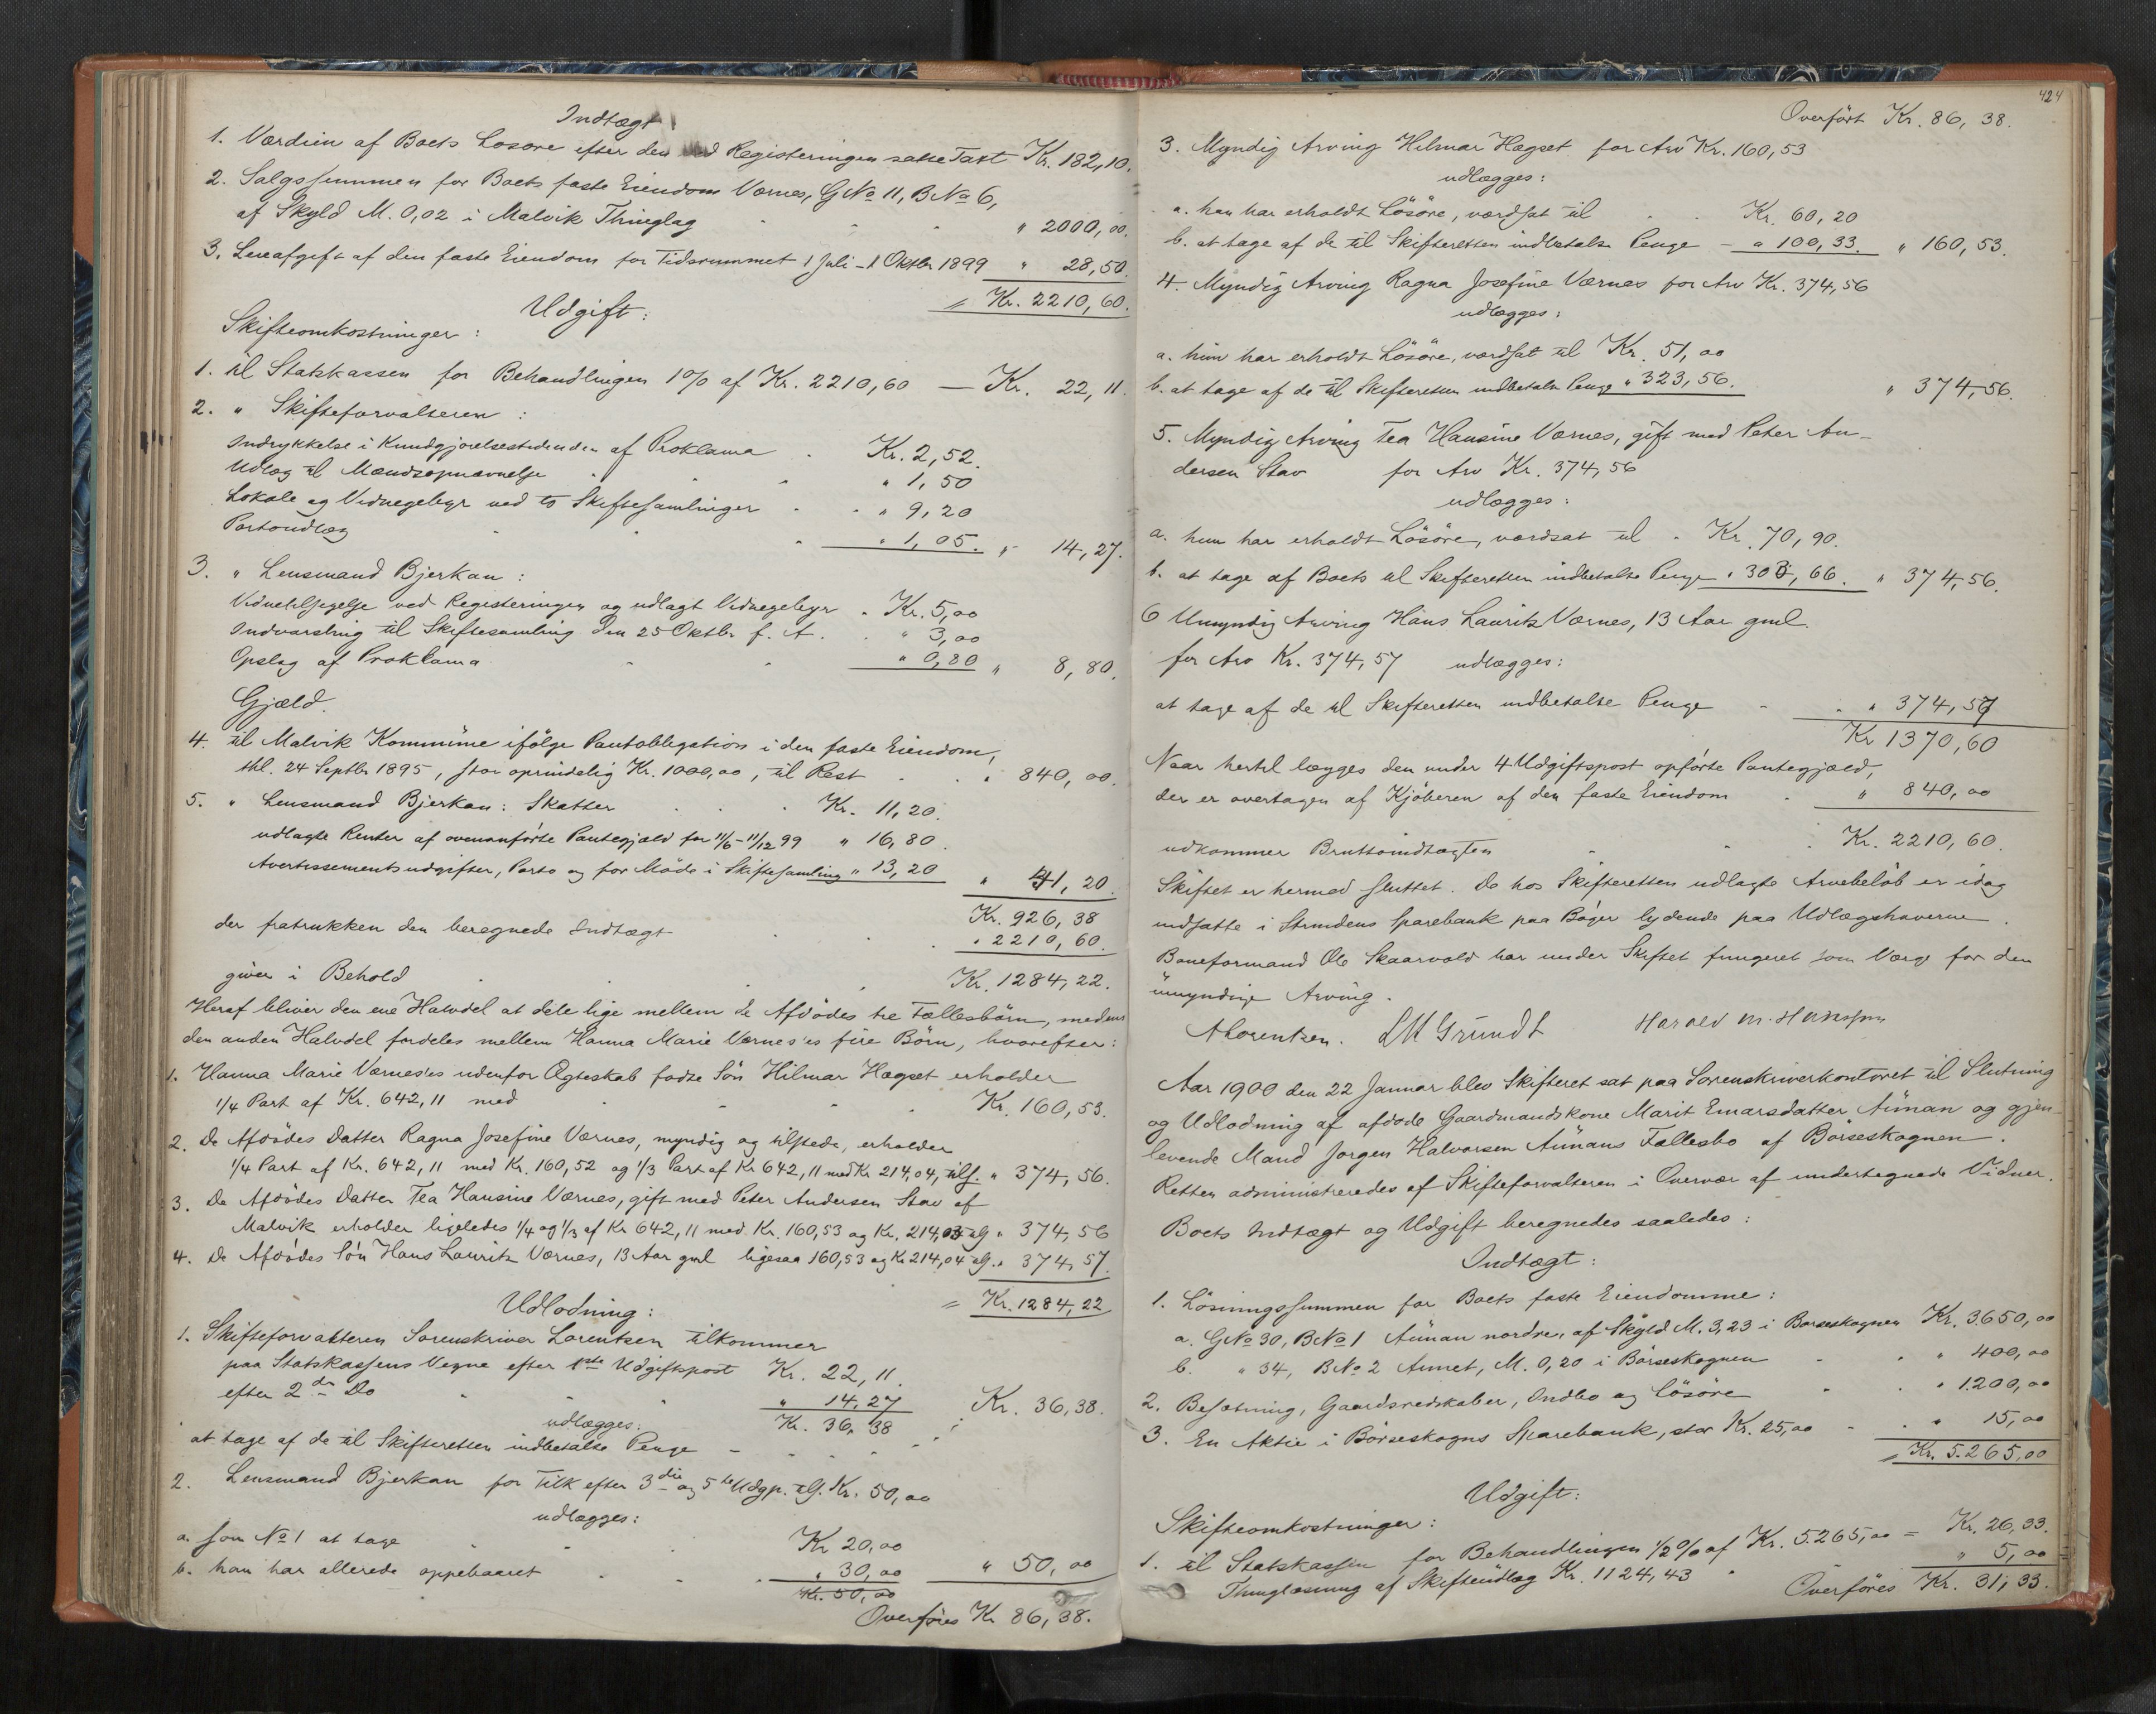 Indtægt
1. Værdien af Boets Løsøre efter den ved Registeringen satte Taxt Kr. 182,10.
2. Salgssummen for Boets faste Eiendom Værnes, G No 11, B No 6,
af Skyld M. 0,02 i Malvik Thinglag " 2000,00.
3. Leieafgift af den faste Eiendom for Tidsrummet 1 Juli - 1 Oktbr 1899 " 28,50.
= Kr. 2210,60.
Udgift:
Skifteomkostninger:
1. til Statskassen for Behandlingen 1% af Kr. 2210,60 — Kr. 22,11.
2. " Skifteforvalteren:
Indrykkelse i Kundgjørelsestidenden af Proklama Kr. 2,52.
Udlæg til Mændsopnævnelse " 1,50
Lokale og Vidnegebyr ved to Skiftesamlinger " 9,20
Portoudlæg " 1,05. " 14,27.
3. " Lensmand Bjerkan:
Vidnetilsigelse ved Registeringen og udlagt Vidnegebyr Kr. 5,00
Indvarsling til Skiftesamling den 25 Oktbr f. A. " 3,00
Opslag af Proklama " 0,80 " 8,80.
Gjæld.
4. til Malvik Kommune ifølge Pantobligation i den faste Eiendom,
thl. 24 Septbr 1895, stor oprindelig Kr. 1000,00, til Rest " 840,00.
5. " Lensmand Bjerkan: Skatter Kr. 11,20.
udlagte Renter af ovenanførte Pantegjæld for 11/6 - 11/12 99 " 16,80.
Avertissementsudgifter, Porto og for Møde i Skiftesamling " 13,20 " 41,20.
Kr. 926,38
der fratrukken den beregnede Indtægt " 2210,60.
giver i Behold Kr. 1284,22.
Heraf bliver den ene Halvdel at dele lige mellem de Afdødes tre Fællesbørn, medens
den anden Halvdel fordeles mellem Hanna Marie Værnes'es fire Børn, hvorefter:
1. Hanna Marie Værnes'es udenfor Ægteskab fødte Søn Hilmar Hægset erholder
1/4 Part af Kr. 642,11 med Kr. 160,53.
2. De Afdødes Datter Ragna Josefine Værnes, myndig og tilstede, erholder
1/4 Part af Kr. 642,11 med Kr. 160,52 og 1/3 Part af Kr 642,11 med Kr 214,04, tils. " 374,56.
3. De Afdødes Datter Tea Hansine Værnes, gift med Peter Andersen Stav af
Malvik erholder ligeledes 1/4 og 1/3 af Kr 642,11 med Kr. 160,53 og Kr. 214,03 tils " 374,56
4. De Afdødes Søn Hans Lauritz Værnes, 13 Aar gml ligesaa 160,53 og Kr 214,04 tils. " 374,57.
= Kr. 1284,22
Udlodning:
1. Skifteforvalteren Sorenskriver Lorentzen tilkommer
paa Statskassens Vegne efter 1ste Udgiftspost Kr. 22,11.
efter 2den Do " 14,27
Kr. 36,38
udlægges:
at tage af de til Skifteretten indbetalte Penge Kr. 36,38.
2. Lensmand Bjerkan for Tilk efter 3die og 5te Udgp. tils. Kr. 50,00
udlægges:
a. som No 1 at tage Kr 20,00
b. han har allerede oppebaaret " 30,00 " 50,00
Kr. 50,00
Overføres Kr 86,38.
424
Overført Kr. 86,38.
3. Myndig Arving Hilmar Hægset for Arv Kr. 160,53
udlægges:
a. han har erholdt Løsøre, værdsat til Kr. 60,20
b. at tage af de til Skifteretten indbetalte Penge - " 100,33. " 160,53.
4. Myndig Arving Ragna Josefine Værnes for Arv Kr. 374,56
udlægges:
a. hun har erholdt Løsøre, værdsat til Kr. 51,00
b. at tage af de til Skifteretten indbetalte Penge " 323,56. " 374,56.
5. Myndig Arving Tea Hansine Værnes, gift med Peter An-
dersen Stav for Arv Kr. 374,56
udlægges:
a. hun har erholdt Løsøre, værdsat til Kr. 70,90.
b. at tage af Boets til Skifteretten indbetalte Penge " 303,66. " 374,56.
6 Umyndig Arving Hans Lauritz Værnes, 13 Aar gml.
for Arv Kr. 374,57 udlægges:
at tage af de til Skifteretten indbetalte Penge " 374,57
Kr 1370,60
Naar hertil lægges den under 4 Udgiftspost opførte Pantegjæld,
der er overtagen af Kjøberen af den faste Eiendom " 840,00
udkommer Bruttoindtægten Kr. 2210,60.
Skiftet er hermed sluttet. De hos Skifteretten udlagte Arvebeløb er idag
indsatte i Strindens Sparebank paa Bøger lydende paa Udlægshaverne.
Boneformand Ole Skaarvold har under Skiftet fungeret som Værge for den
umyndige Arving.
A Lorentzen. L M Grundt Harald M. Hansen
Aar 1900 den 22 Januar blev Skifteret sat paa Sorenskriverkontoret til Slutning
og Udlodning af afdøde Gaardmandskone Marit Einarsdatter Aunan og gjen-
levende Mand Jørgen Halvorsen Aunans Fællesbo af Børseskognen.
Retten administreredes af Skifteforvalteren i Overvær af undertegnede Vidner.
Boets Indtægt og Udgift beregnedes saaledes:
Indtægt:
1. Løsningssummen for Boets faste Eiendomme:
a. G No 30, B No 1 Aunan nordre, af Skyld M. 3,23 i Børseskognen Kr. 3650,00
b. " 34, B No 2 Aunet, M. 0,20 i Børseskognen " 400,00
2. Besætning, Gaardsredskaber, Indbo og Løsøre " 1200,00
3. En Aktie i Børseskogns Sparebank, stor Kr. 25,00 " 15,00
= Kr. 5265,00
Udgift:
Skifteomkostninger:
1. til Statskassen for Behandlingen 1/2 % af Kr. 5265,00 = Kr. 26,33.
Thinglæsning af Skifteudlæg Kr. 1124,43 " 5,00
Overføres Kr. 31,33.